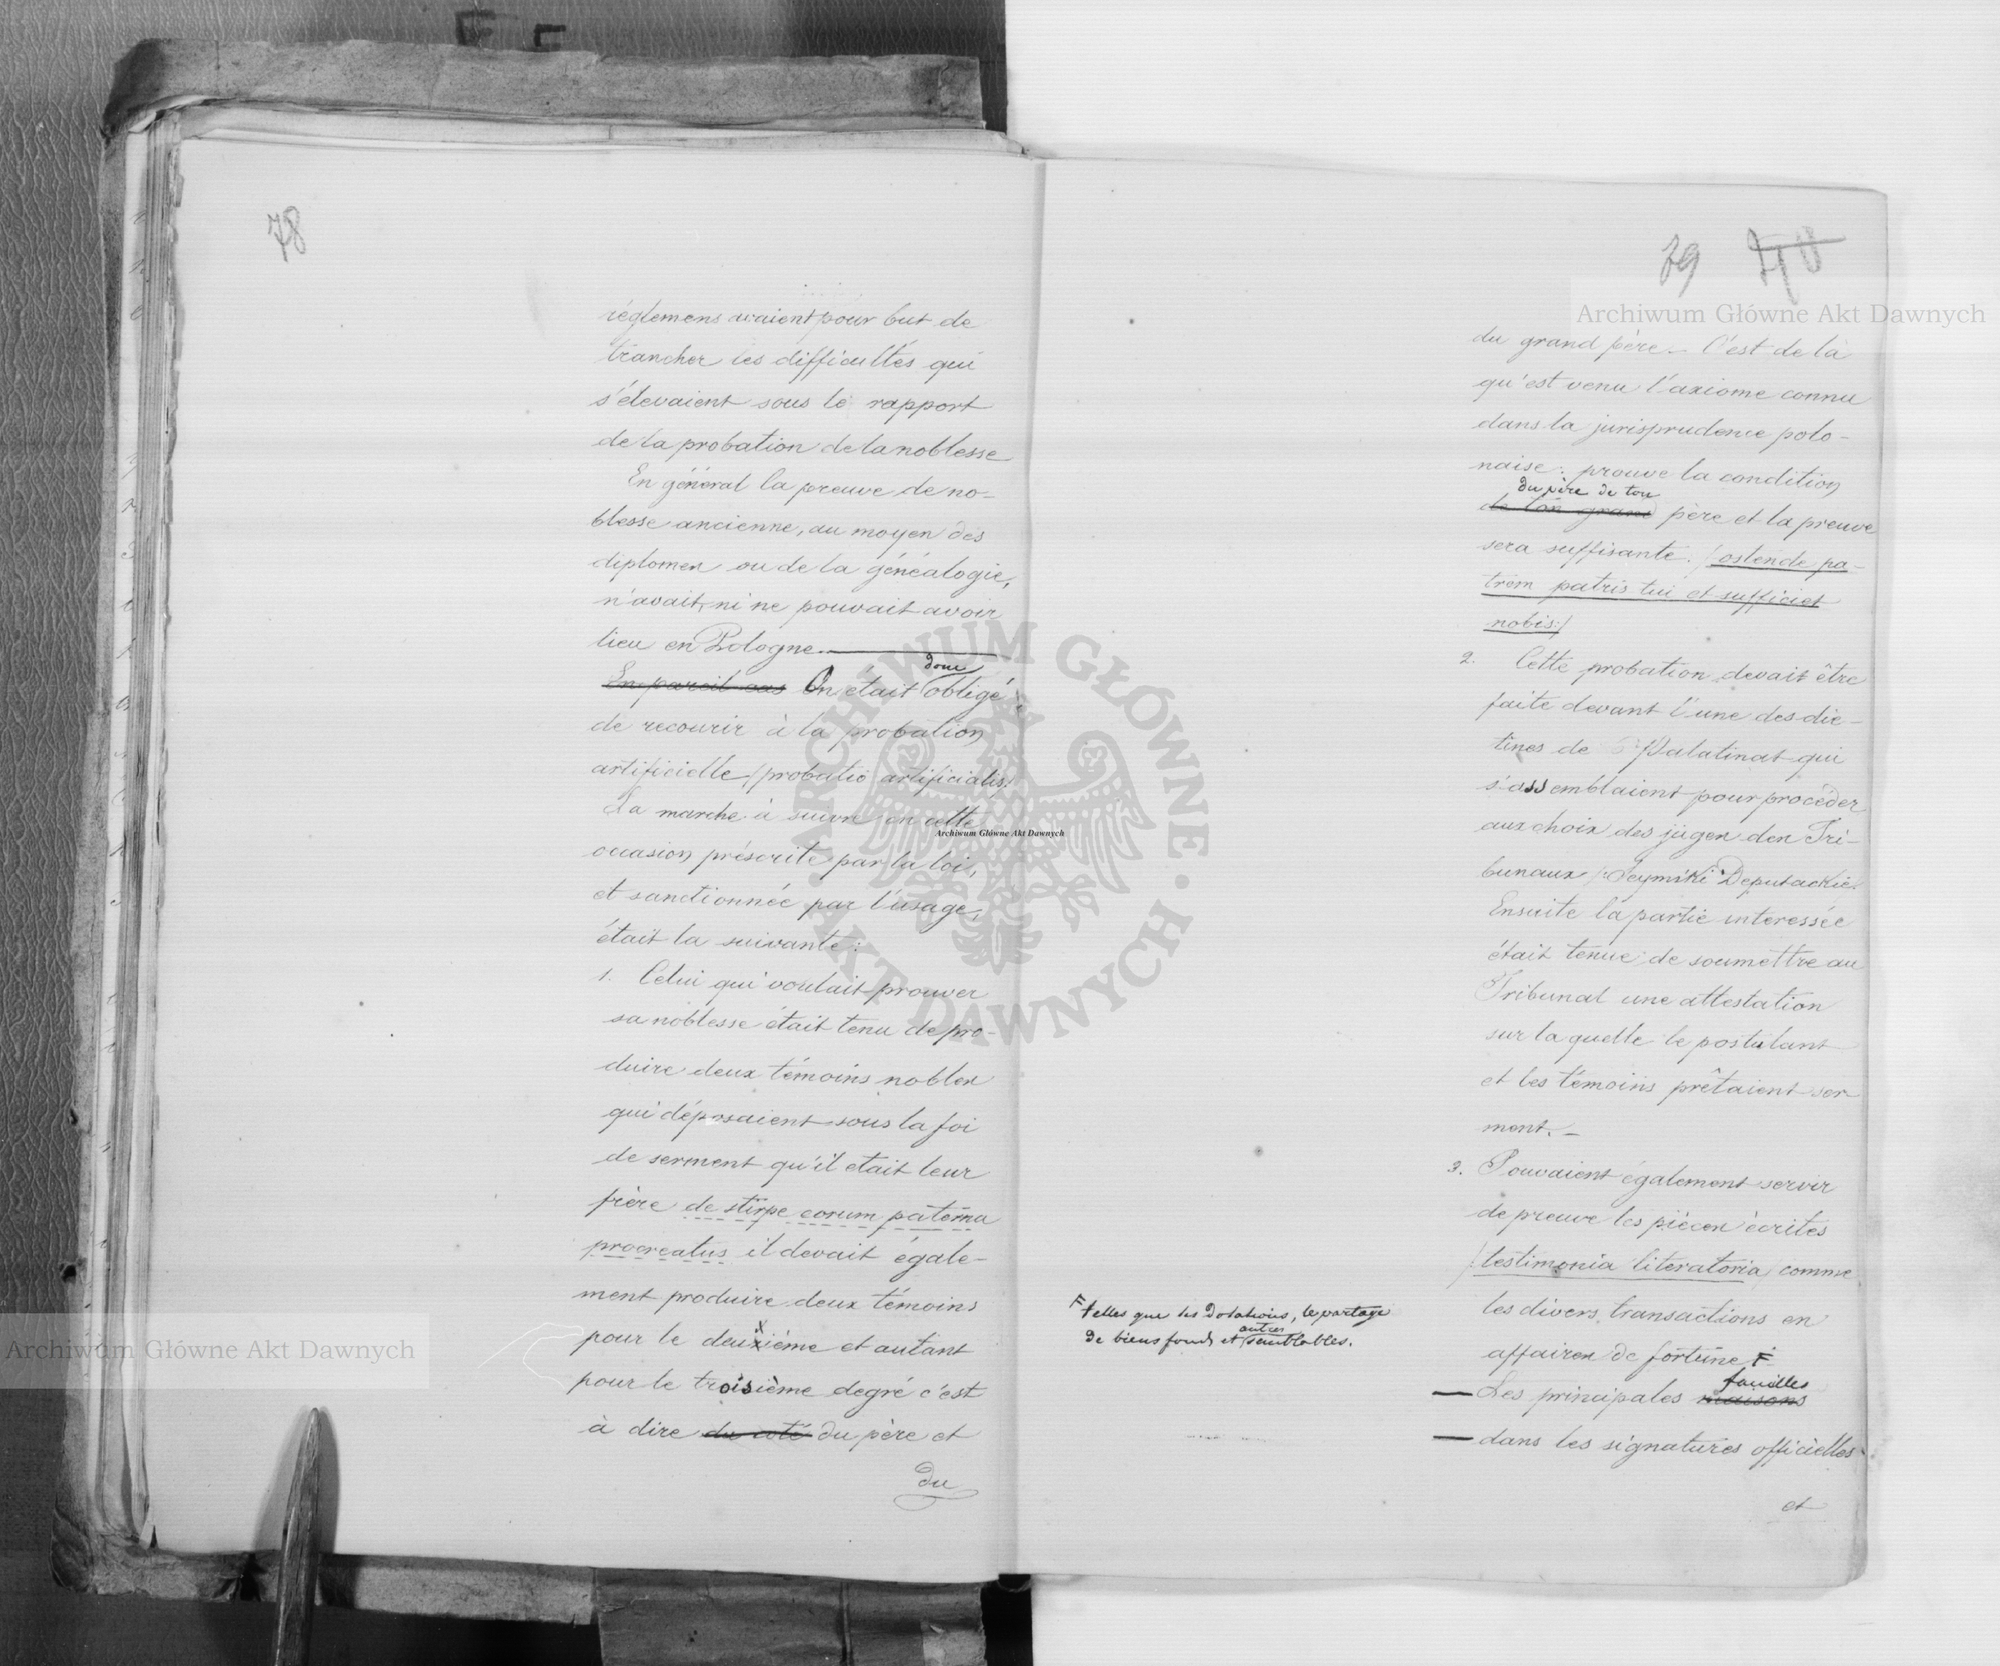 78
réglemens avaient pour but de
trancher les difficultés qui
s'élevaient sous le rapport
de la probation de la noblesse
En général la preuve de no-
blesse ancienne, au moyen des
diplomes ou de la généalogie,
n'avait, ni ne pouvait avoir
lieu en Pologne.
donc
En pareil cas On était obligé
de recourir à la probation
artificielle /probatio artificialis/
La marche à suivre en cette
occasion préscrite par la loi,
et sanctionnée par l'usage,
était la suivante:
1. Celui qui voulait prouver
sa noblesse était tenu de pro-
duire deux témoins nobles
qui déposaient sous la foi
de serment qu'il etait leur
frère de stirpe eorum paterna
procreatus il devait égale-
ment produire deux témoins
pour le deuxième et autant
pour le troisième degré c'est
à dire du coté du père et
du
79 70
du grand père. C'est de là
qu'est venu l'axiome connu
dans la jurisprudence polo-
naise: prouve la condition
du père de ton
de ton grand père et la preuve
sera suffisante. /ostende pa-
trem patris tui et sufficiet
nobis:/
2. Cette probation devait être
faite devant l'une des dié-
tines de Palatinat qui
s'assemblaient pour procéder
aux choix des juges des Tri-
bunaux /:Seymiki Deputackie:
Ensuite la partie interessée
était tenue de soumettre au
Tribunal une attestation
sur laquelle le postulant
et les témoins prêtaient ser-
ment. –
3. Pouvaient également servir
de preuve les pièces écrites
/:testimonia literatoria comme
les divers transactions en
affaires de fortune F
familles
Les principales maisons
dans les signatures officielles
et
F telles que les Dotations, le partage
autres
de biens fonds et semblables.
Archiwum Główne Akt Dawnych
Archiwum Główne Akt Dawnych
Archiwum Główne Akt Dawnych
ARCHIWUM GŁÓWNE · AKT DAWNYCH ·